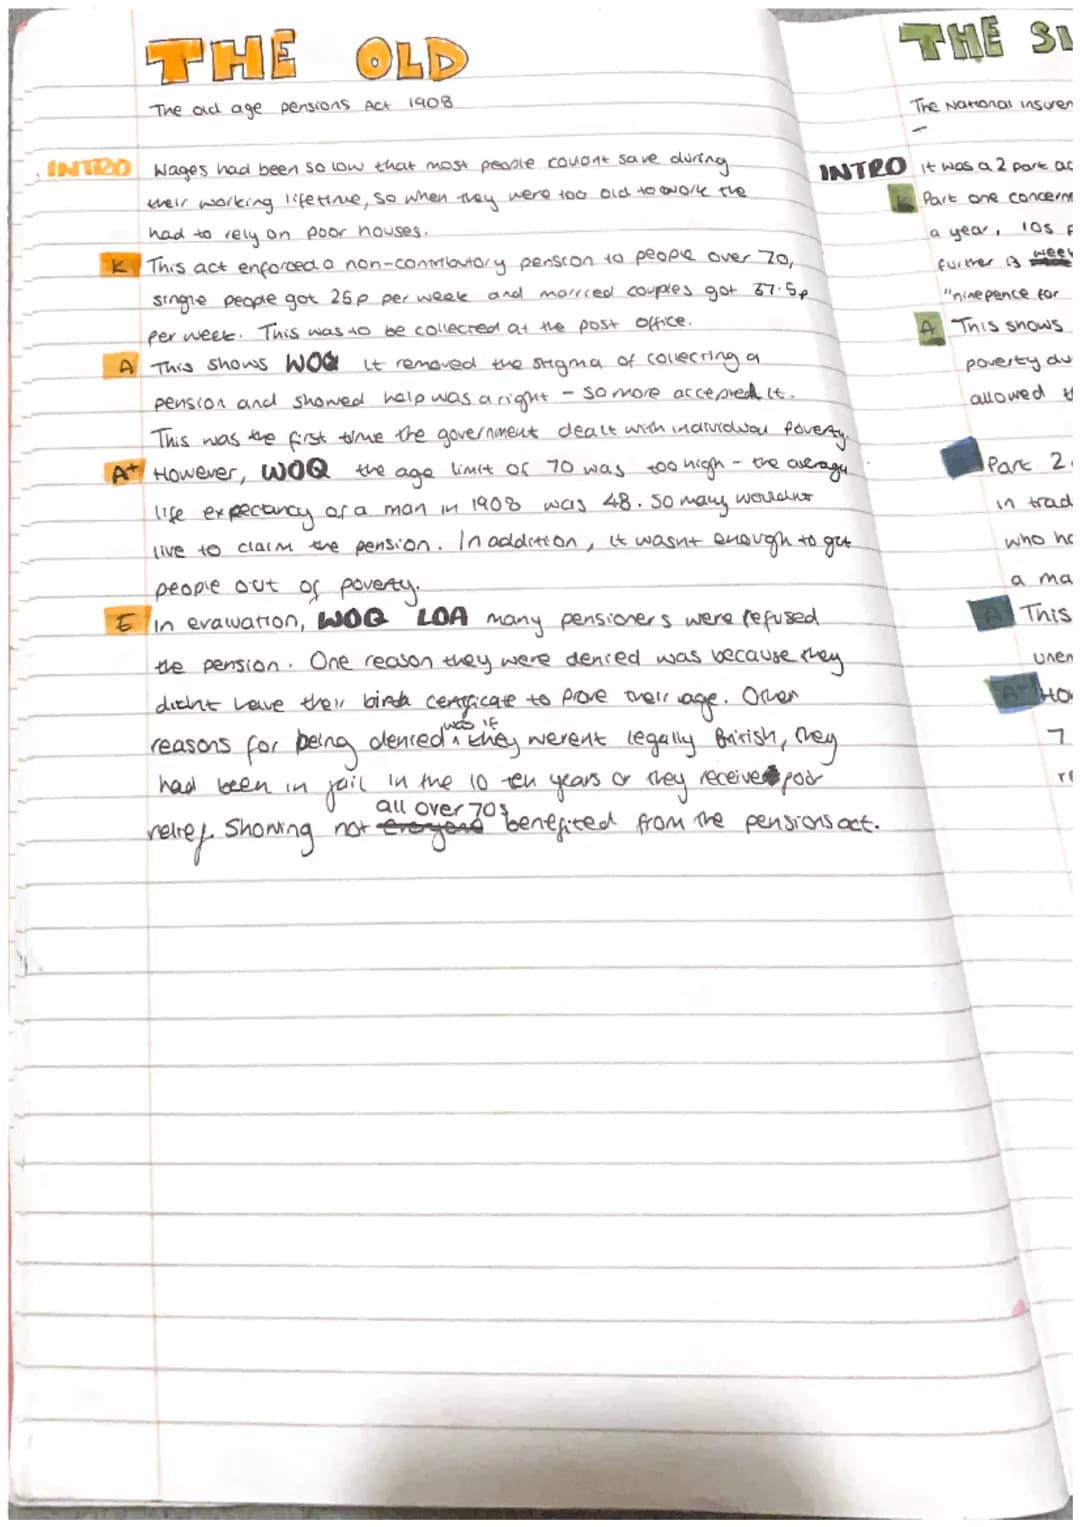 THE OLD
The old age pensions Act 1908
INTRO Wages had been so low that most people couldnt save during
their working lifetime, so when they were too old to work the
had to rely on poor houses.
K This act enforced a non-contributory pension to people over 70,
single people got 25p per week and married couples got 37.5p
per week. This was to be collected at the post office.
A This shows WOQ it removed the stigma of collecting a
pension and showed help was a right - so more accepted it.
This was the first time the government dealt with individual poverty.
A+ However, WOQ the age limit of 70 was too high - the average
life expectancy of a man in 1908 was 48. So many wouldnt
live to claim the pension. In addition, it wasnt enough to get
people out of poverty.
E In evaluation, WOQ LOA many pensioners were refused
the pension. One reason they were denied was because they
didnt have their birth certificate to prove their age. Other
reasons for being denied was if they werent legally British, they
had been in jail in the 10 ten years or they receive poor
relief. Showing not everyone all over 70s benefited from the pensions act.
THE
The National insuren
INTRO It was a 2 part ac
K Part one concern
a year, 10s
further is week
"ninepence for
A This shows
poverty du
allowed t
Part 2
in trad
who ha
a ma
A This
unem
A+ Ho
7